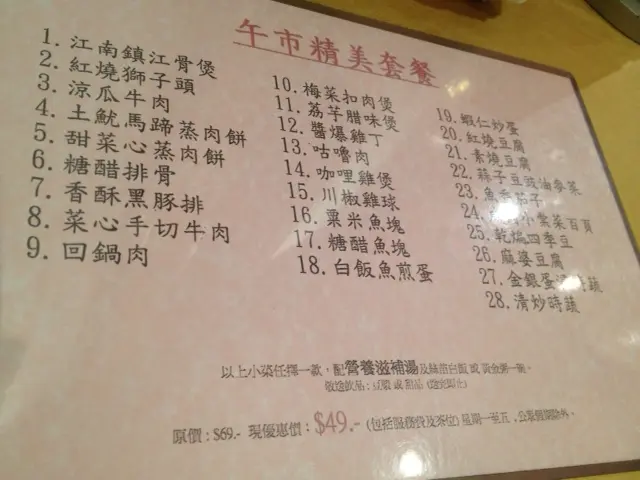 午市精美套餐
1. 江南鎮江骨煲
2. 紅燒獅子頭
3. 涼瓜牛肉
4. 土魷馬蹄蒸肉餅
5. 甜菜心蒸肉餅
6. 糖醋排骨
7. 香酥黑豚排
8. 菜心手切牛肉
9. 回鍋肉
10. 梅菜扣肉煲
11. 荔芋腊味煲
12. 醬爆雞丁
13. 咕嚕肉
14. 咖哩雞煲
15. 川椒雞球
16. 粟米魚塊
17. 糖醋魚塊
18. 白飯魚煎蛋
19. 蝦仁炒蛋
20. 紅燒豆腐
21. 素燒豆腐
22. 蒜子豆豉油麥菜
23. 魚香茄子
24. 小棠菜百頁
25. 乾煸四季豆
26. 麻婆豆腐
27. 金銀蛋時蔬
28. 清炒時蔬
以上小菜任擇一款，配營養滋補湯及絲苗白飯 或 黃金粥一碗。
敬送飲品：豆漿 或 甜品
原價：$69.- 現優惠價：$49.- (包括服務費及茶位) 星期一至五，公眾假期除外。